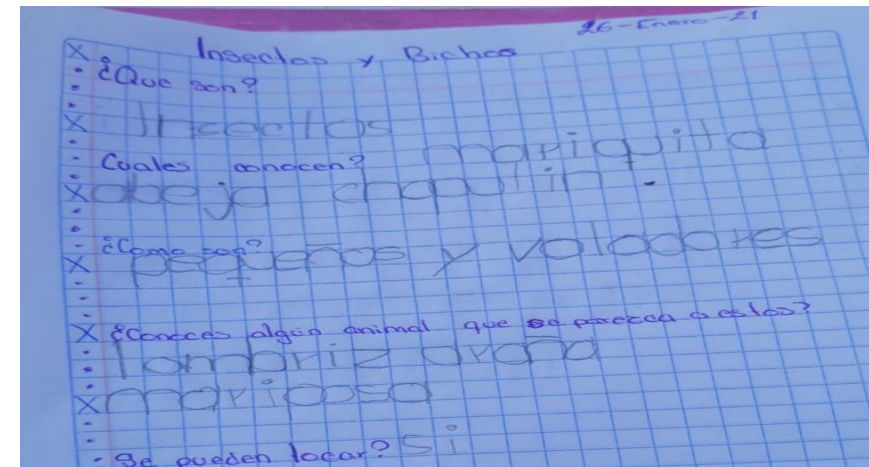 26-Enero-21
Insectos y Bichos
¿Que son?
Insectos
Cuales conocen? mariquita
abeja chapulin.
¿Como son?
pequeños y voladores
¿Conoces algún animal que se parezca a estos?
lombriz araña
mariposa
Se pueden tocar? Si